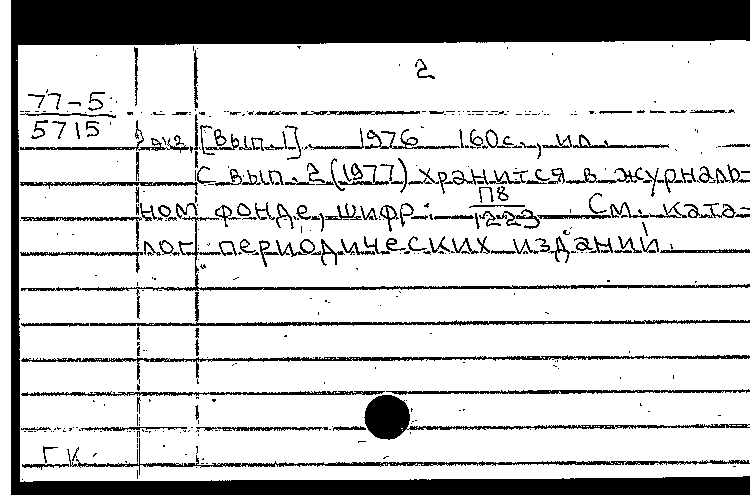 2
77-5
5715
2 экз. [Вып. 1]. 1976 160с., ил.
С вып. 2 (1977) хранится в журналь-
ном фонде, шифр: П8/1223. См. ката-
лог периодических изданий.
ГК.